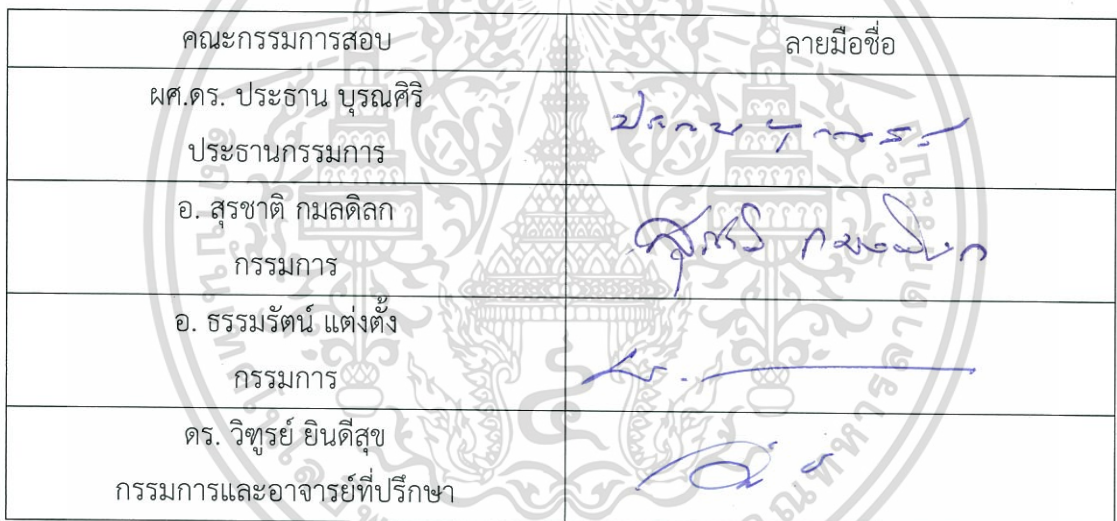 คณะกรรมการสอบ ลายมือชื่อ
ผศ.ดร. ประธาน บุรณศิริ
ประธานกรรมการ
อ. สุรชาติ กมลดิลก
กรรมการ
อ. ธรรมรัตน์ แต่งตั้ง
กรรมการ
ดร. วิฑูรย์ ยินดีสุข
กรรมการและอาจารย์ที่ปรึกษา